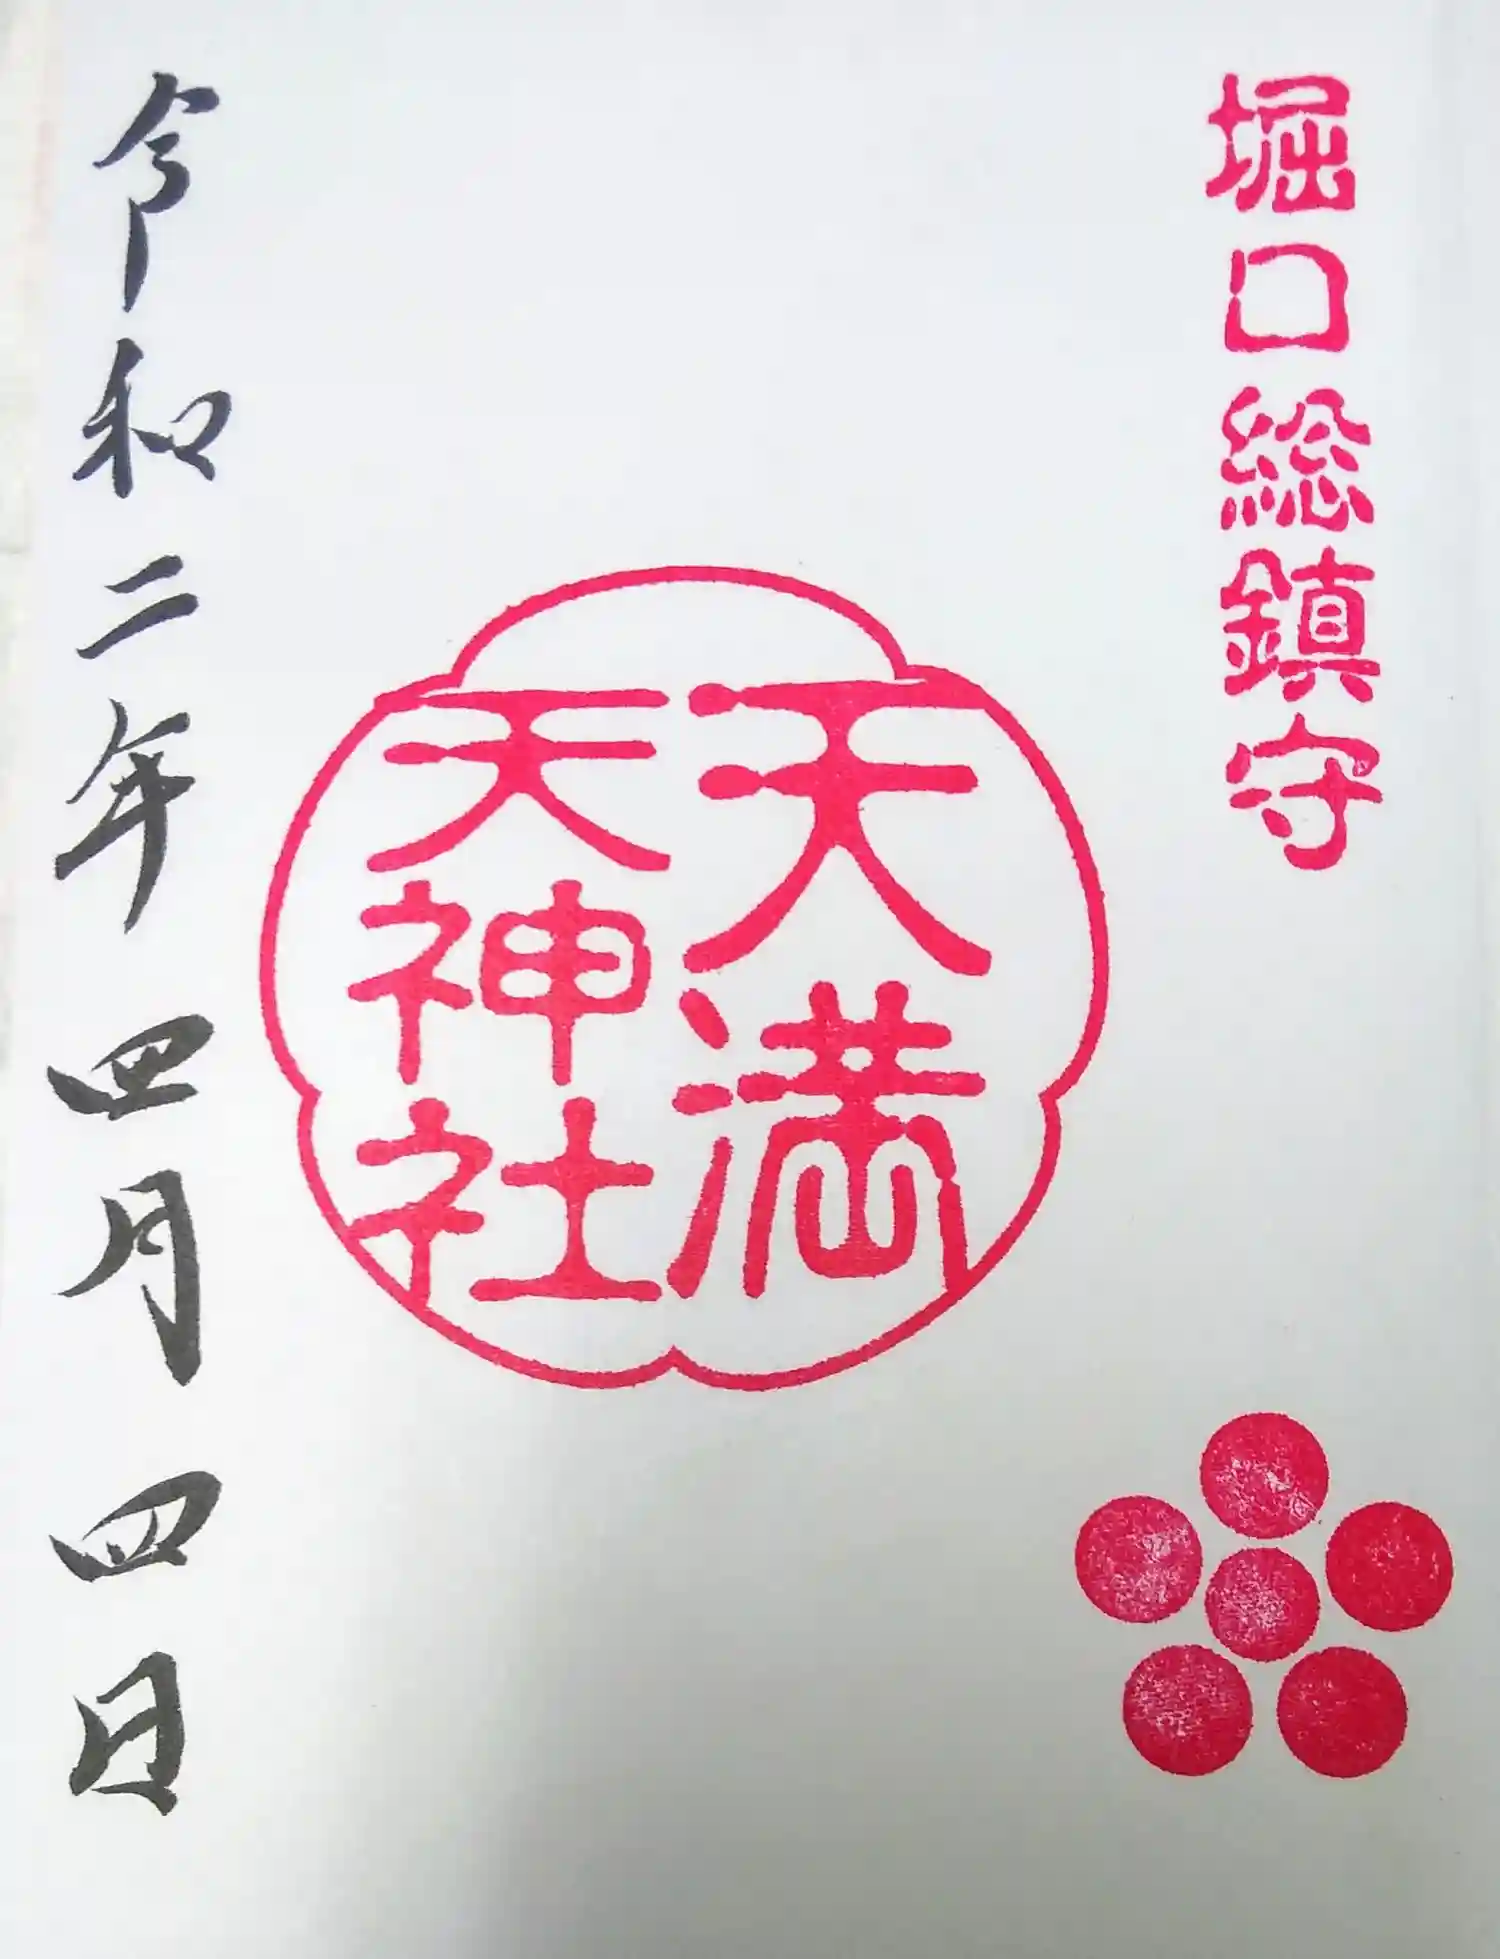 堀口総鎮守
天満
天神社
令和二年四月四日